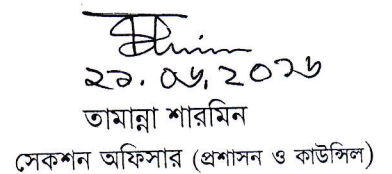 ২৯.০৬.২০২৬
তামান্না শারমিন
সেকশন অফিসার (প্রশাসন ও কাউন্সিল)